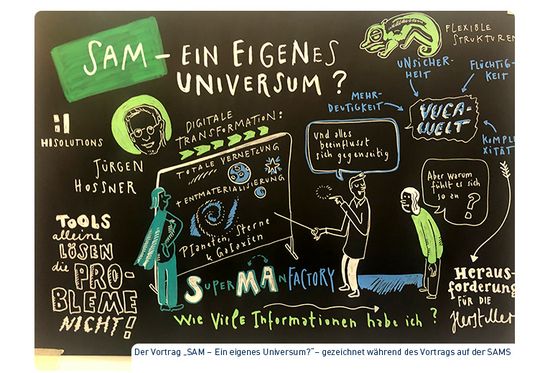 SAM – EIN EIGENES
UNIVERSUM?
FLEXIBLE
STRUKTUREN
UNSICHER-
HEIT
FLÜCHTIG-
KEIT
MEHR-
DEUTIGKEIT
VUCA-
WELT
KOMPLE
XITÄT
HISOLUTIONS
JÜRGEN
HOSSNER
DIGITALE
TRANSFORMATION:
TOTALE VERNETZUNG
+ ENTMATERIALISIERUNG
Planeten, Sterne
& Galaxien
Und alles
beeinflusst
sich gegenseitig
Aber warum
fühlt es sich
so an
?
TOOLS
alleine
LÖSEN
die PRO-
BLEME
NICHT!
SUPERMANFACTORY
Wie viele Informationen habe ich?
Heraus-
forderung
FÜR DIE
Hersteller
Der Vortrag „SAM – Ein eigenes Universum?“ – gezeichnet während des Vortrags auf der SAMS